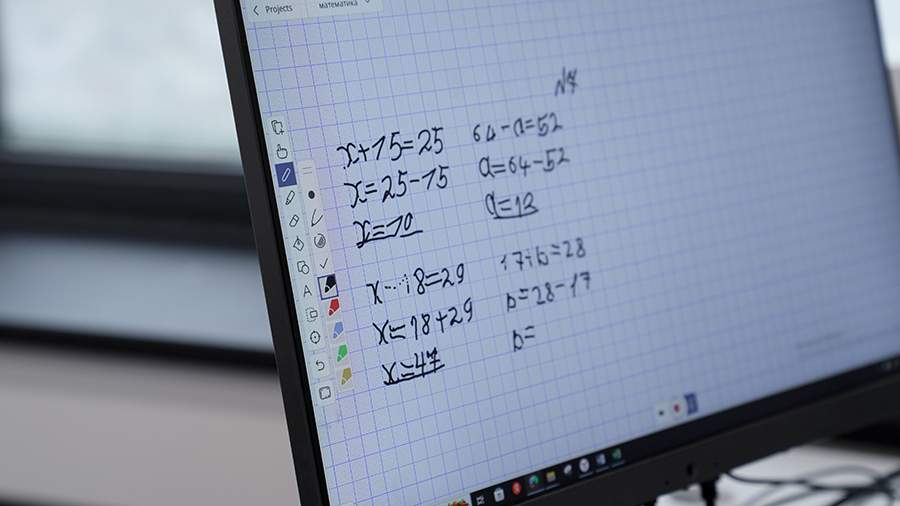 Projects
математика
x+15=25
x=25-15
x=10
x-18=29
x=18+29
x=47
64-a=52
a=64-52
a=12
17+b=28
b=28-17
b=